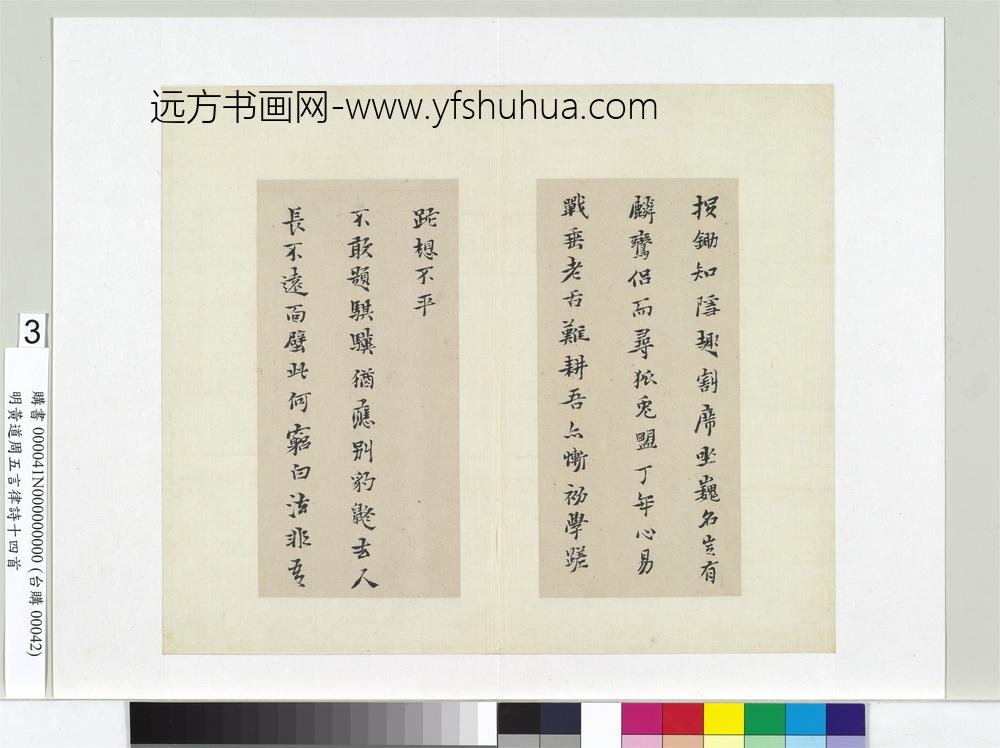 远方书画网-www.yfshuhua.com
損鋤知隱趣割席坐巍名豈有
麟鸞侶而尋狐兔盟丁年心易
戰垂老舌難耕吾亦慚初學蹉
跎想不平
不敢題騏驥猶應別豹鼮去人
長不遠面壁此何窮白法非吾
3
購書 000041N000000000 (台購 00042)
明黃道周五言律詩十四首